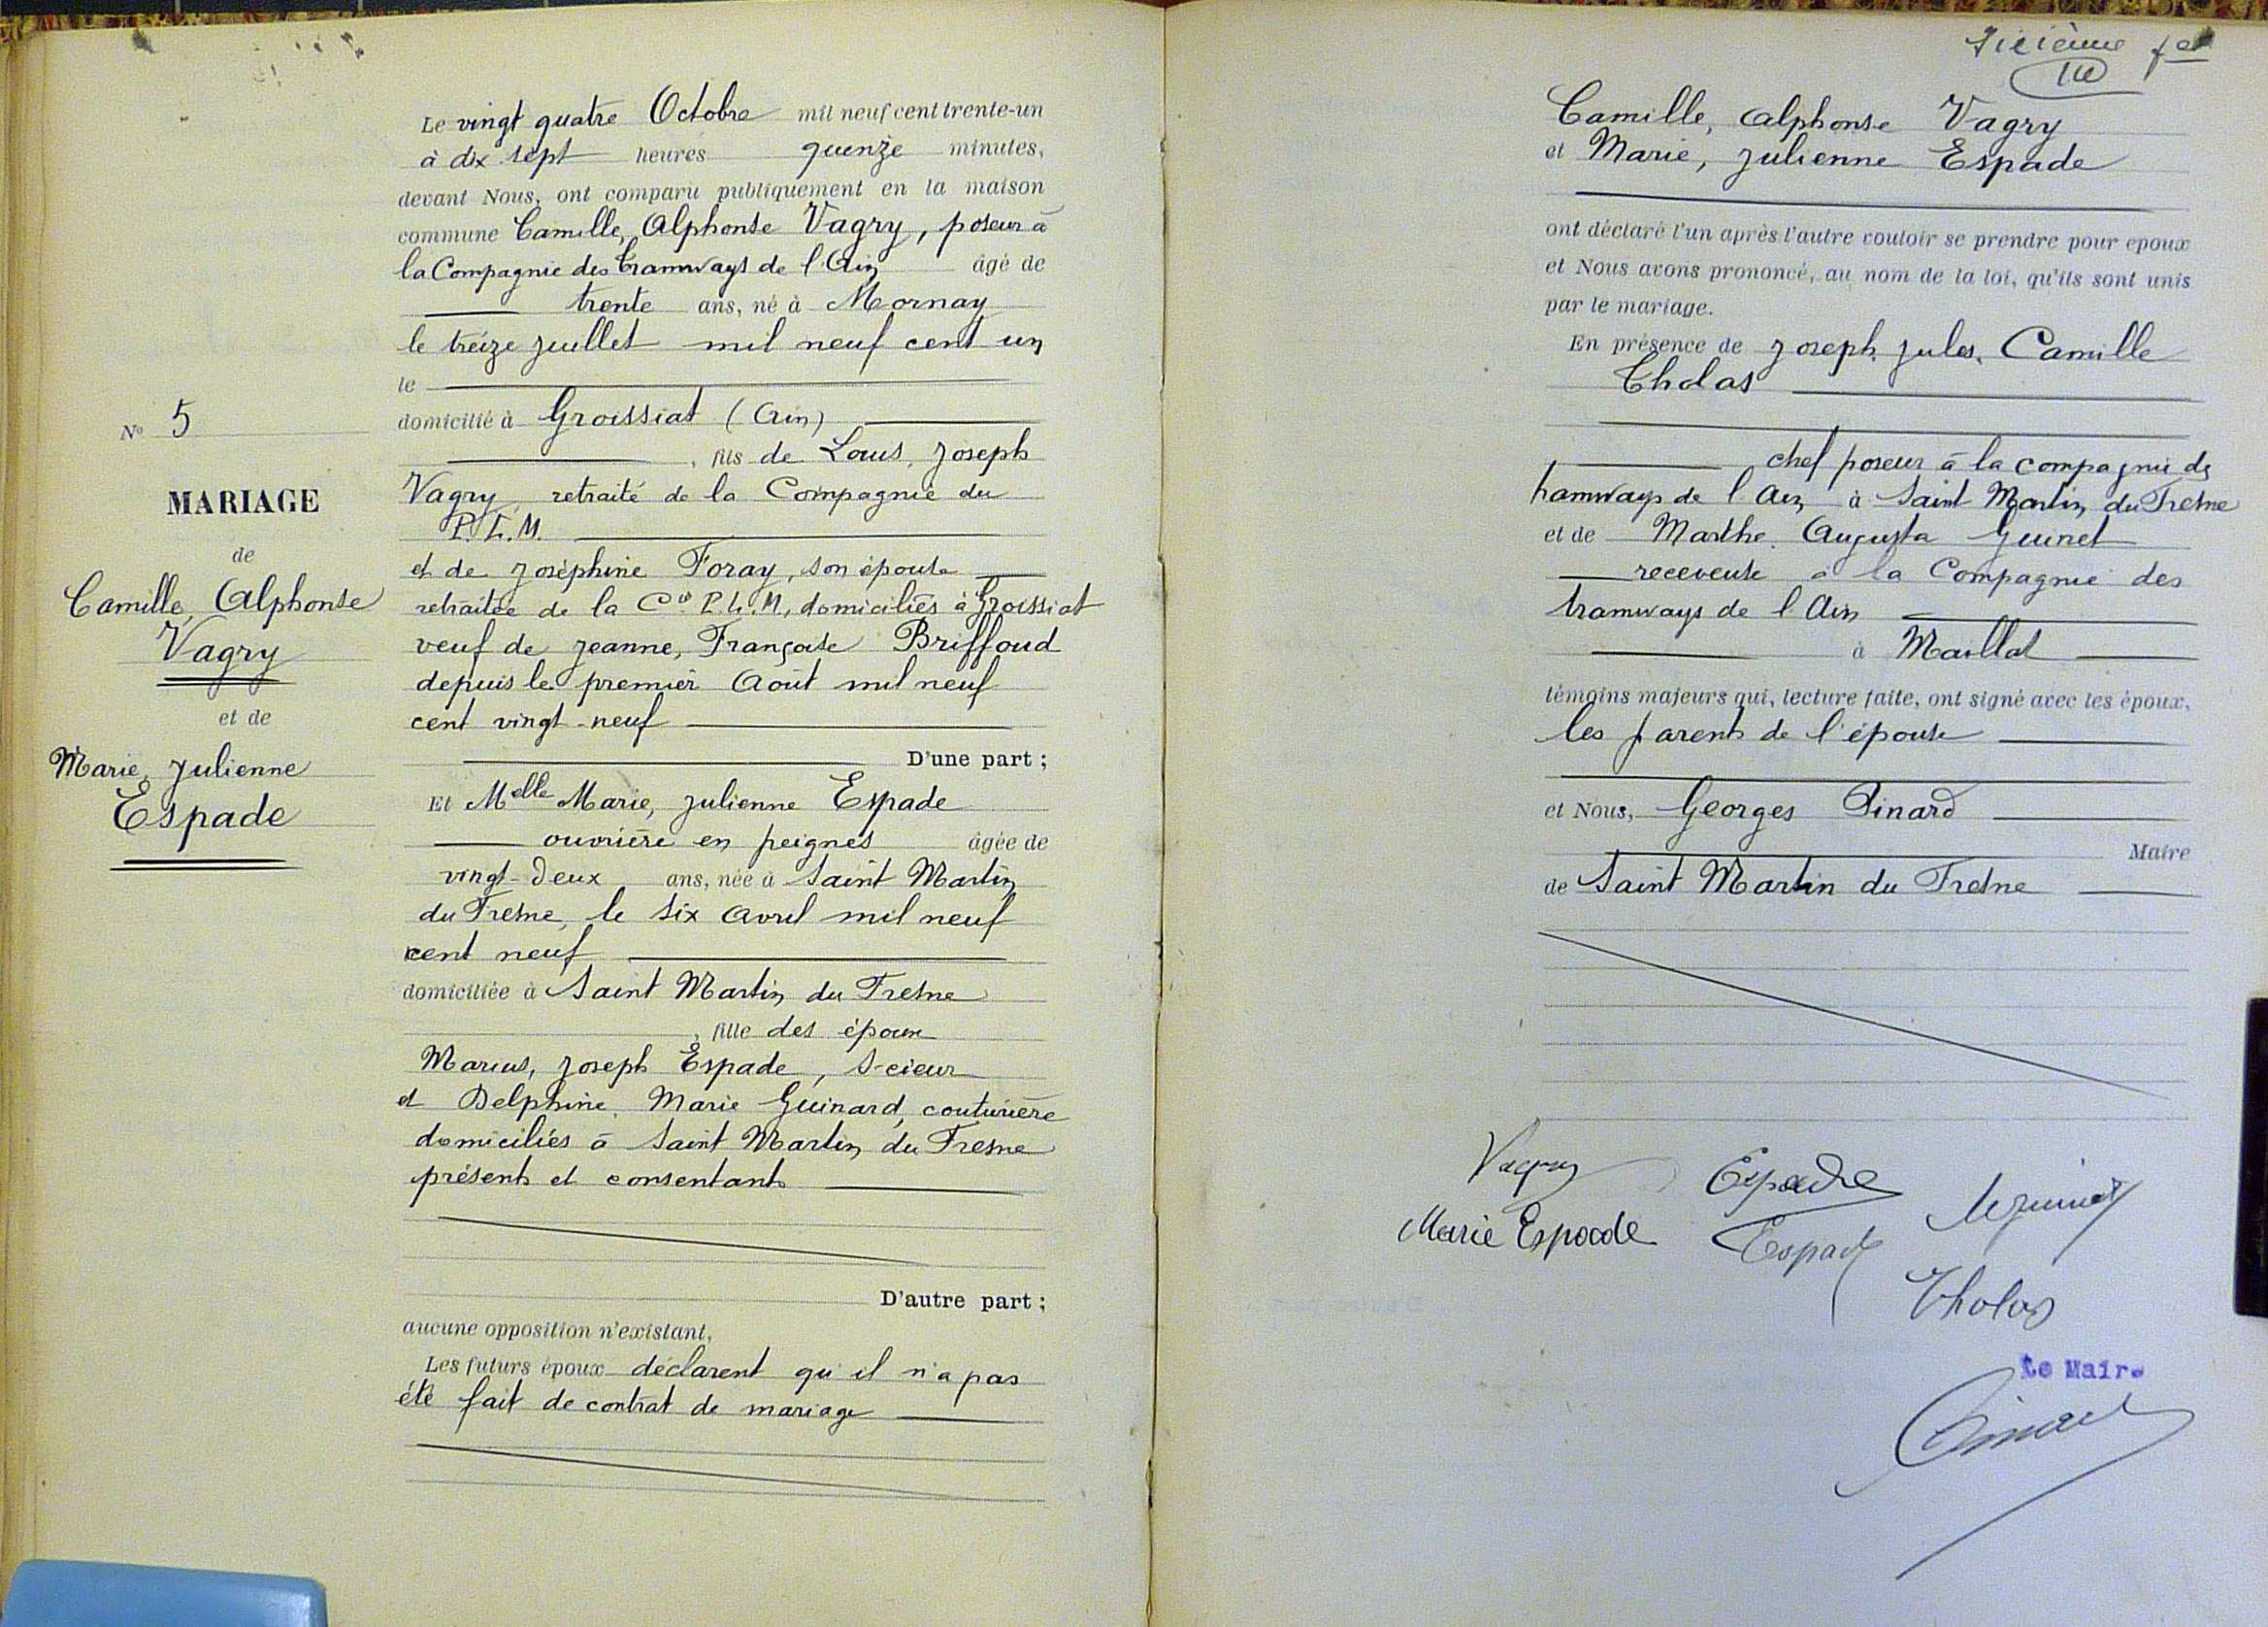 N° 5
MARIAGE
de
Camille, Alphonse
Vagry
et de
Marie, Julienne
Espade
Le vingt quatre Octobre mil neuf cent trente-un
à dix sept heures quinze minutes,
devant Nous, ont comparu publiquement en la maison
commune Camille, Alphonse Vagry, poseur à
la Compagnie des tramways de l'Ain âgé de
trente ans, né à Mornay
le treize juillet mil neuf cent un
le
domicilié à Groissiat (Ain)
, fils de Louis, Joseph
Vagry, retraité de la Compagnie du
P.L.M.
et de Joséphine Foray, son épouse
retraitée de la Cie P.L.M., domiciliés à Groissiat
veuf de Jeanne, Françoise Briffoud
depuis le premier Août mil neuf
cent vingt-neuf
D'une part ;
Et Melle Marie, Julienne Espade
ouvrière en peignes âgée de
vingt-deux ans, née à Saint Martin
du Fresne, le six Avril mil neuf
cent neuf
domiciliée à Saint Martin du Fresne
, fille des époux
Marius, Joseph Espade, scieur
et Delphine, Marie Guinard, couturière
domiciliés à Saint Martin du Fresne
présents et consentants
D'autre part ;
aucune opposition n'existant,
Les futurs époux déclarent qu'il n'a pas
été fait de contrat de mariage
Camille, Alphonse Vagry
et Marie, Julienne Espade
ont déclaré l'un après l'autre vouloir se prendre pour époux
et Nous avons prononcé, au nom de la loi, qu'ils sont unis
par le mariage.
En présence de Joseph, Jules, Camille
Tholas
chef poseur à la compagnie des
tramways de l'Ain à Saint Martin du Fresne
et de Marthe, Augusta Guinet
receveuse à la Compagnie des
tramways de l'Ain
à Maillat
témoins majeurs qui, lecture faite, ont signé avec les époux,
les parents de l'épouse
et Nous, Georges Pinard
Maire
de Saint Martin du Fresne
Vagry Espade
Marie Espade Espade
Tholas
Le Maire
Pinard